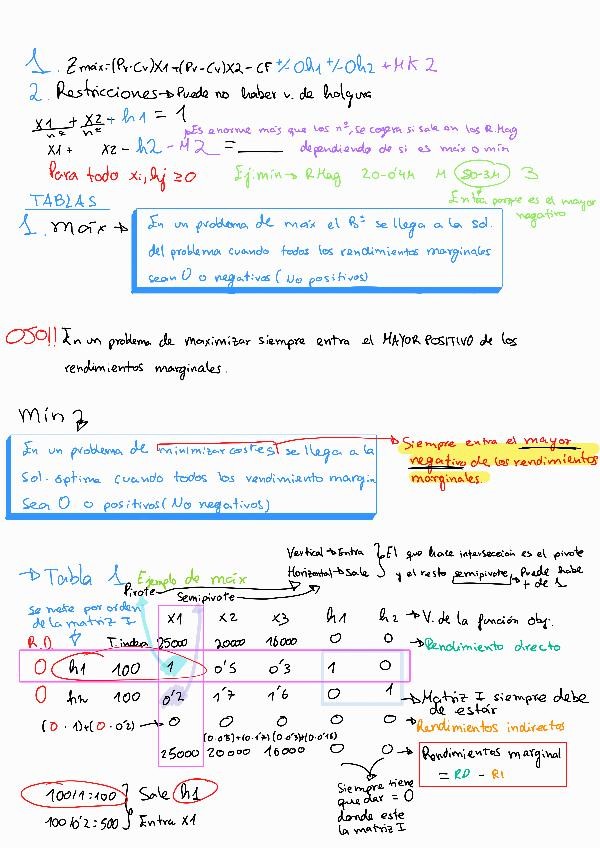 1. Zmáx=(Pv-Cv)X1+(Pv-Cv)X2-CF +/-0h1 +/-0h2 +MK2
2. Restricciones→Puede no haber v. de holgura
X1/nº + X2/nº + h1 = 1
Es enorme más que los nº, se cogera si sale en los R.Mag
X1 + X2 - h2 - M2 = ____ dependiendo de si es max o min
Para todo xi, hj ≥0 Ej:min→ R Mag 20-0'4M M 50-3M 3
Entra porque es el mayor
negativo
TABLAS
1. máx → En un problema de máx el Bº se llega a la sol.
del problema cuando todos los rendimientos marginales
sean 0 o negativos (No positivos)
OJO!! En un problema de maximizar siempre entra el MAYOR POSITIVO de los
rendimientos marginales.
Min Z
En un problema de minimizar costes se llega a la
sol. óptima cuando todos los rendimiento margin
sean 0 o positivos (No negativos)
Siempre entra el mayor
negativo de los rendimientos
marginales.
Vertical→Entra
Horizontal→Sale
El que hace intersección es el pivote
y el resto semipivote→Puede habe
+ de 1
→Tabla 1 Ejemplo de máx
Pivote Semipivote
se mete por orden
de la matriz I
X1 X2 X3 h1 h2 → V. de la función obj.
R.D T.indea 25000 20000 16000 0 0 → Rendimiento directo
0 h1 100 1 0'5 0'3 1 0
0 h2 100 0'2 1'7 1'6 0 1 → Matriz I siempre debe
de estar
(0·1)+(0·0'2)→ 0 0 0 0 0 → Rendimientos indirectos
(0·0'5)+(0·0'17) (0·0'3)+(0·0'16)
25000 20000 16000 0 0 → Rendimientos marginal
= RD - RI
100/1=100 Sale h1
100/0'2=500 Entra X1
Siempre tiene
que dar = 0
donde este
la matriz I